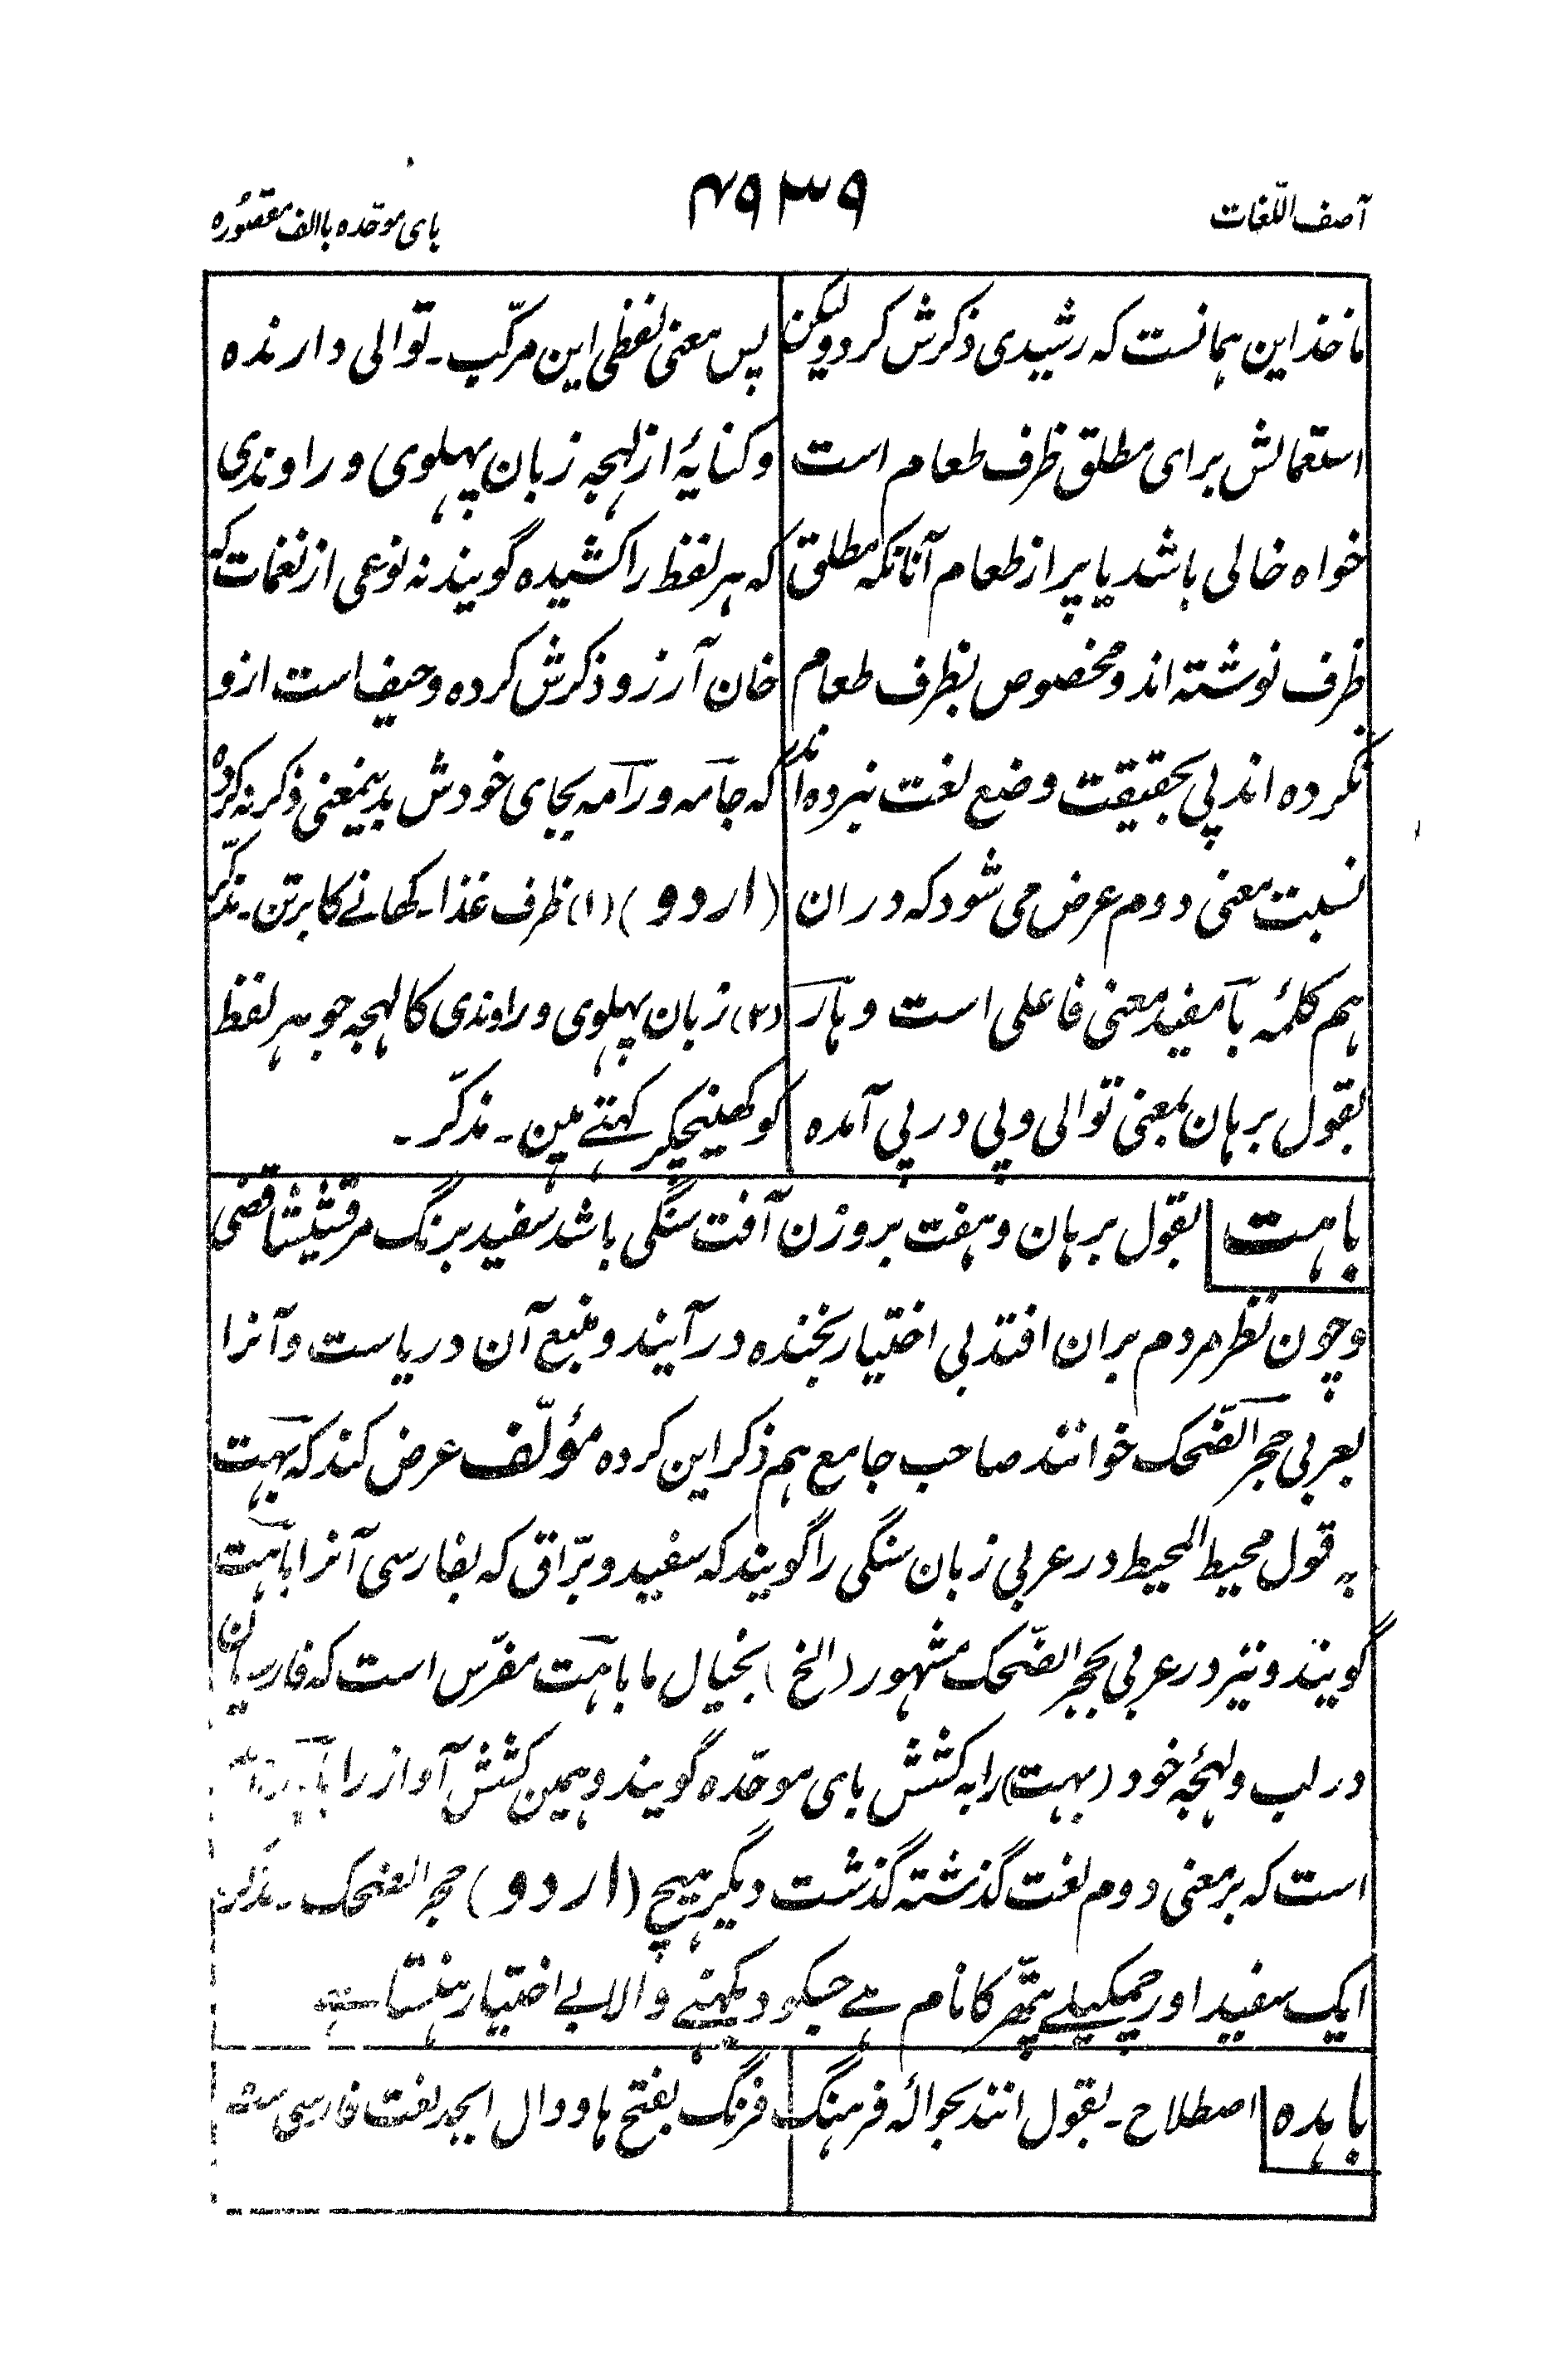 آصف اللّغات
۴۹۳۹
بای موحّده باالف مقصُوره
ماخذ این همانست که رشیدی ذکرش کرد ولیکن
استعمالش برای مطلق ظرف طعام است
خواه خالی باشد یا پر از طعام آنانکه مطلق
ظرف نوشته اند و مخصوص بظرف طعام
نکرده اند پی بحقیقت وضع لغت نبرده اند
نسبت معنی دوم عرض می شود که دران
هم کلمهٔ بآ مفید معنی فاعلی است و هآر
بقول برهان بمعنی توالی و پی در پی آمده
پس معنی لفظی این مرکّب ۔ توالی دارنده
و کنایهٔ از لهجه زبان پهلوی و راوندی
که هر لفظ را کشیده گویند نه نوعی از نغمات که
خان آرزو ذکرش کرده و حیف است ازو
که جآمه و رآمه بجای خودش بدینمعنی ذکر نه کرده
(اردو) (۱) ظرف غذا ۔ کھانے کا برتن ۔ مذکّر
(۲) زبان پہلوی و راوندی کا لہجہ جو ہر لفظ
کو کھینچکر کہتے ہین ۔ مذکّر ۔
باهت بقول برهان و هفت بروزن آفت سنگی باشد سفید برنگ مرقشیشا فضی
و چون نظر مردم بران افتد بی اختیار بخنده درآیند و منبع آن دریاست و آنرا
بعربی حجر الضّحک خوانند صاحب جامع هم ذکر این کرده مؤلّف عرض کند که بهت
به قول محیط المحیط در عربی زبان سنگی را گویند که سفید و برّاق که بفارسی آنرا باهت
گویند و نیز در عربی بحجر الضّحک مشهور (الخ) بخیال ما باهت مفرّس است که فارسیان
در لب و لهجهٔ خود (بهت) را به کشش بای موحّده گویند و همین کشش آواز را
است که بر معنی دوم لغت گذشته گذشت دیگر هیچ (اردو) حجر الضحک ۔ مذکر
ایک سفید اور چمکیلے پتّھر کا نام ہے جسکو دیکھنے والا بے اختیار ہنستا ہے
باهده اصطلاح ۔ بقول انند بحوالهٔ فرهنگ فرنگ بفتح ها و دال ابجد لغت فارسی